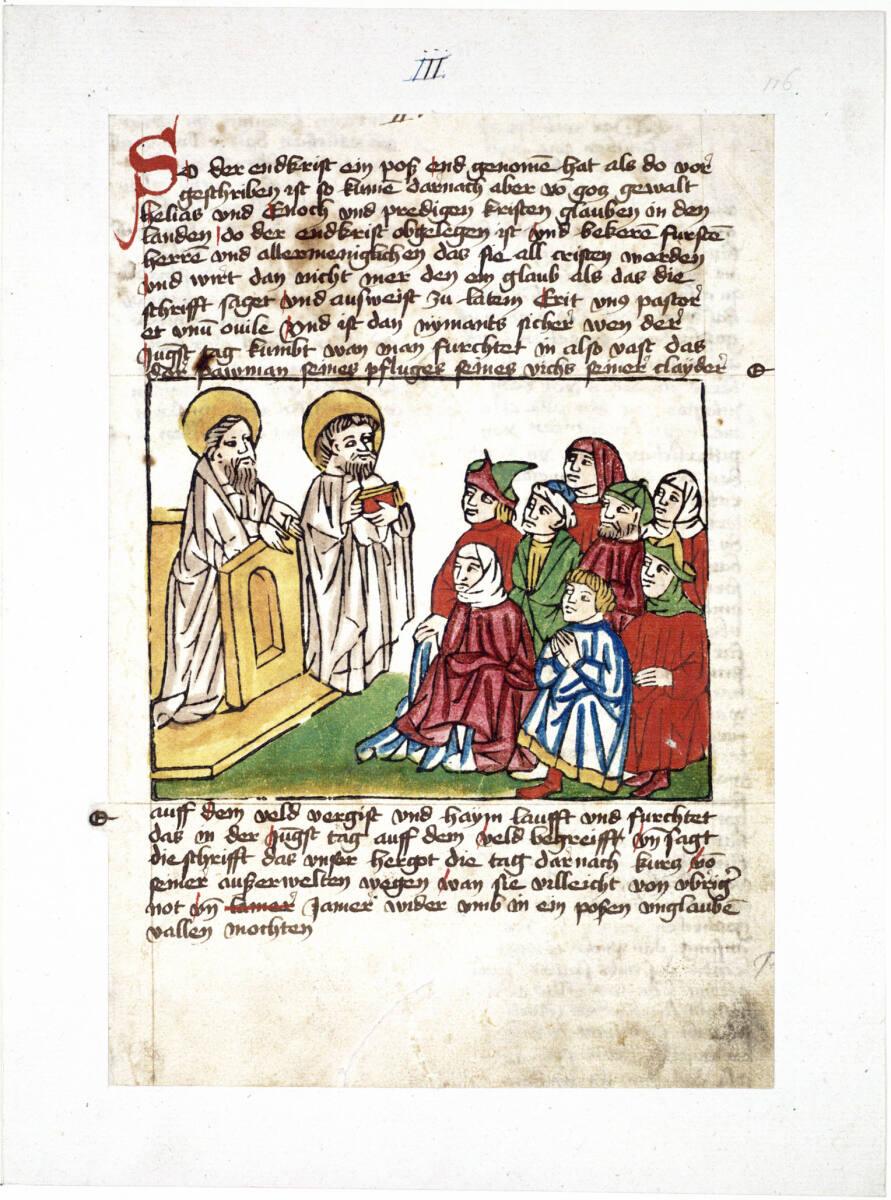 III
116
So der endkrist ein poß end genomē hat als do vor
geschriben ist so kumē darnach aber vō gotz gewalt
helias vnd Enoch vnd predigen kristen glauben in den
landen do der endkrist obgelegen ist vnd bekerē furstē
herrē vnd allermeniglichen das sie all cristen werden
vnd wirt dan nicht mer den ein glaub als das die
schrifft saget vnd ausweist zu latein Erit vnꝰ pastor
et vnū ouile Vnd ist dan nymants sicher wen der
Jungst tag kumbt wan man furchtet in also vast das
der pawman seines pfluges seines vichs seiner clayder
auff dem veld vergist vnd haym laufft vnd furchtet
das in der Jungst tag auff dem veld begreifft vn̄ sagt
die schrifft das vnser hergot die tag darnach kurtz vō
seiner außerwelten wegen wan sie villeicht von vbrig̉
not vn̄ lamer Jamer wider vmb in ein posen vnglaubē
vallen mochten